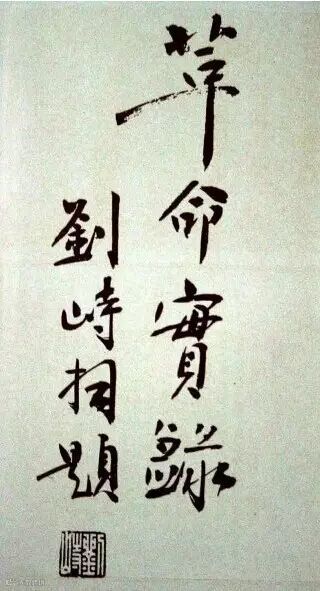 革命實錄
劉峙題
劉峙